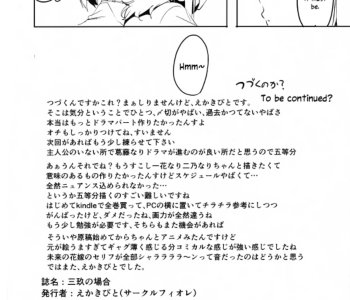 must
be.
Hmm~
つづくのか?
To be continued?
つづくんですかこれ?まぁしりませんけど、えかきびとです。
そこは気分ということでひとつ、〆切がやばい、過去かつてないやばさ
本当はもっとドラマパート作りたかったんすよ
オチもしっかりつけてね、すいません
次回があればもう少し練らせて下さい
主人公のいない所で葛藤なりドラマが進むのが良い所だと思うので五等分
あぁうんそれでね?もうすこし一花なり二乃なりちゃんと描きたくて
意味のあるもの作りたかったんすけどスケジュールやばくて…
全然ニュアンス込められなかった…
というか五等分描くのすごい難しいですね
はじめてkindleで全巻買って、PCの横に置いてチラチラ参考にしつつ
がんばったけど、ダメだったね、画力が全然違うね
もう少し勉強が必要です、そちらもまた機会があれば
そういや原稿始めてからちゃんとアニメみたんですけど
元が絵うますぎてギャグ薄く感じる分コミカルな感じが強い感じでしたね
未来の花嫁のセリフが全部シャララララ~ンって音だったのはどうかと思う
ではまた、えかきびとでした。
誌名:三玖の場合
発行者:えかきびと(サークルフィオレ)